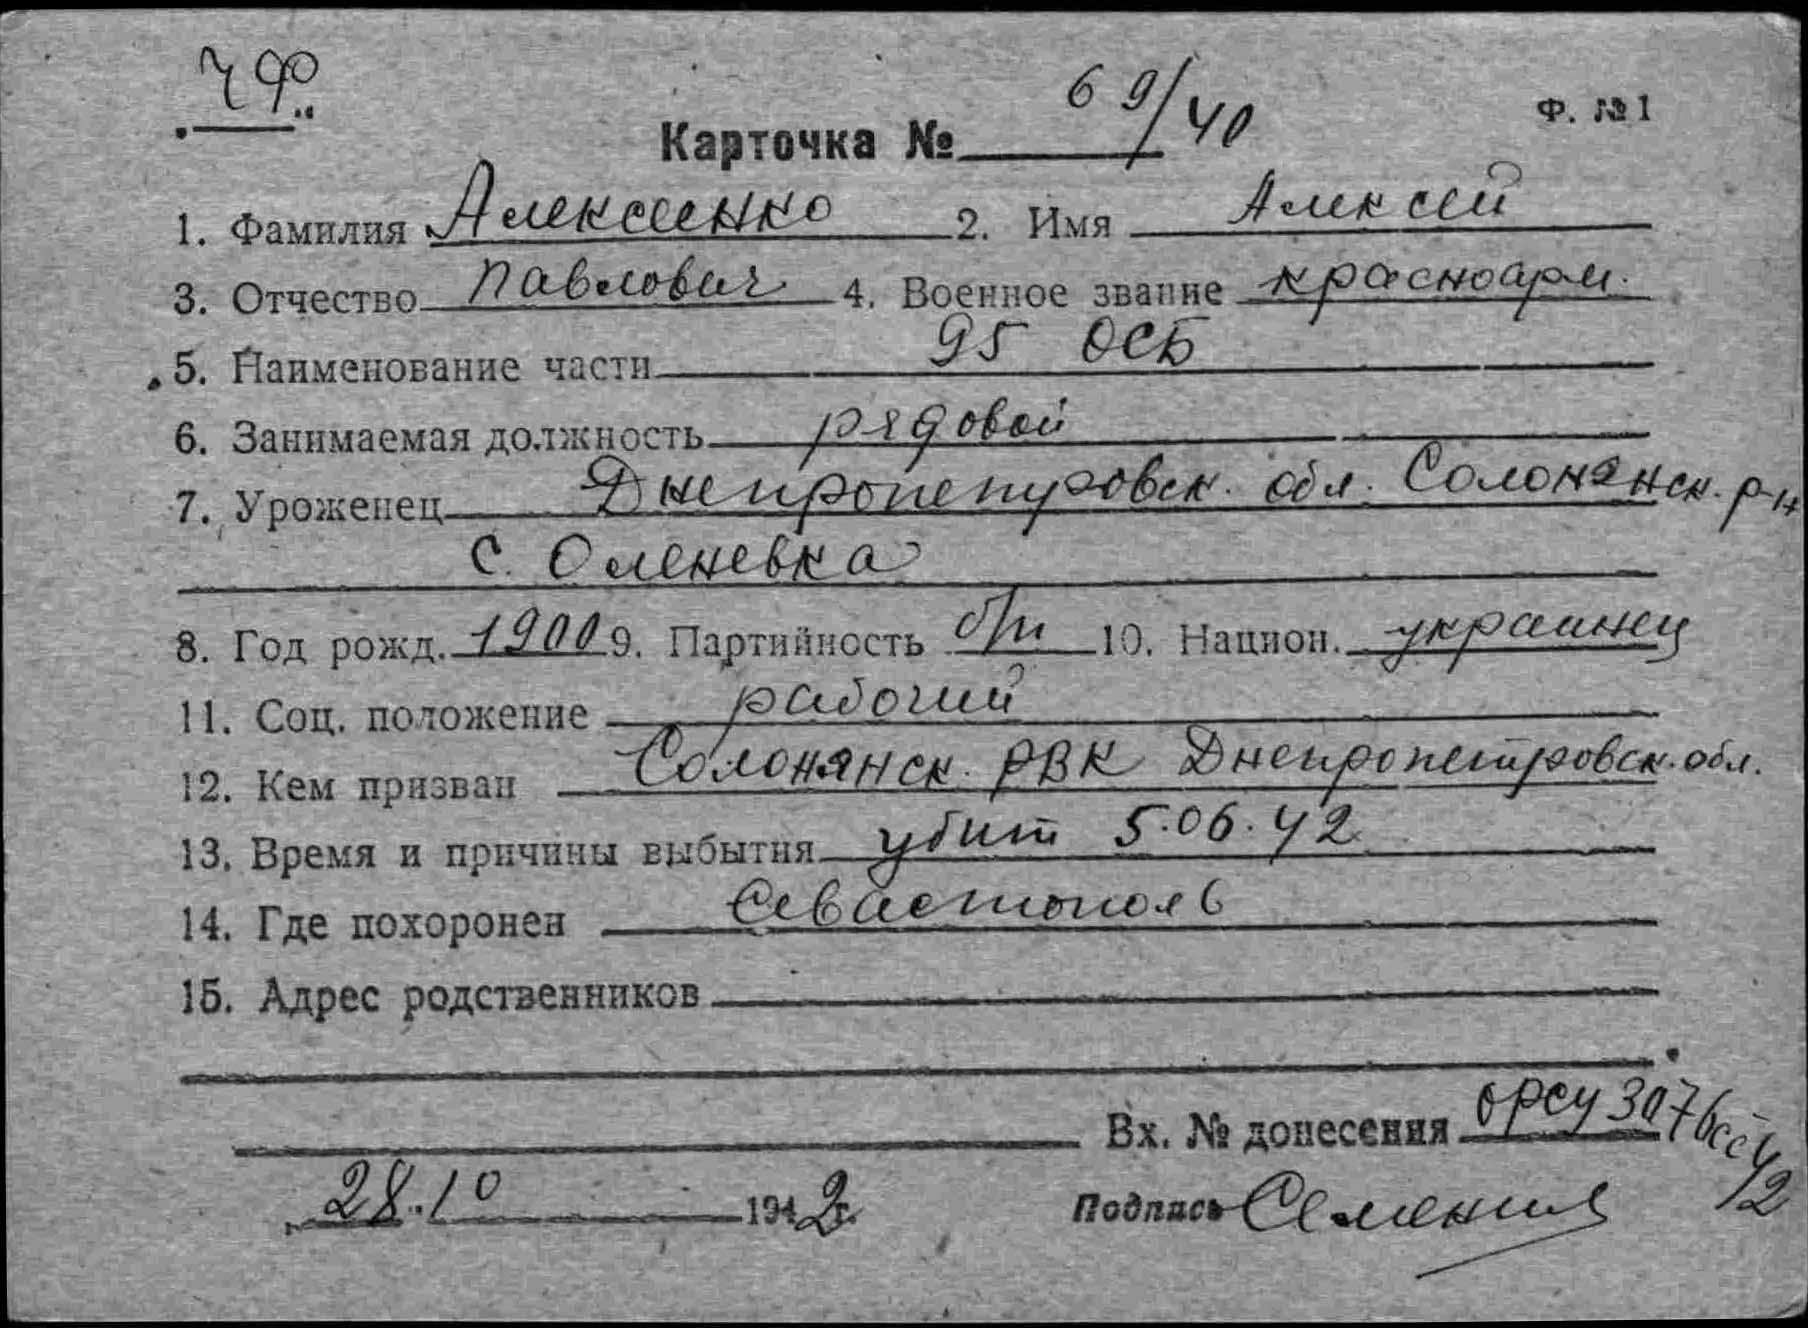 ЧФ
Карточка № 69/40
Ф. № 1
1. Фамилия Алексеенко 2. Имя Алексей
3. Отчество Павлович 4. Военное звание красноарм.
5. Наименование части 95 ОСБ
6. Занимаемая должность рядовой
7. Уроженец Днепропетровск. обл. Солонянск. р-н
с. Оленевка
8. Год рожд. 1900 9. Партийность б/п 10. Национ. украинец
11. Соц. положение рабочий
12. Кем призван Солонянск. РВК Днепропетровск. обл.
13. Время и причины выбытия убит 5.06.42
14. Где похоронен Севастополь
15. Адрес родственников
Вх. № донесения орсу 307
28.10 1942г.
Подпись